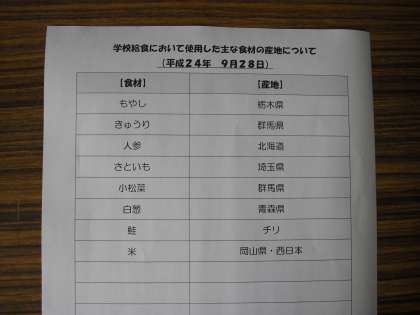 学校給食において使用した主な食材の産地について
（平成24年　9月28日）
【食材】　【産地】
もやし　栃木県
きゅうり　群馬県
人参　北海道
さといも　埼玉県
小松菜　群馬県
白葱　青森県
鮭　チリ
米　岡山県・西日本